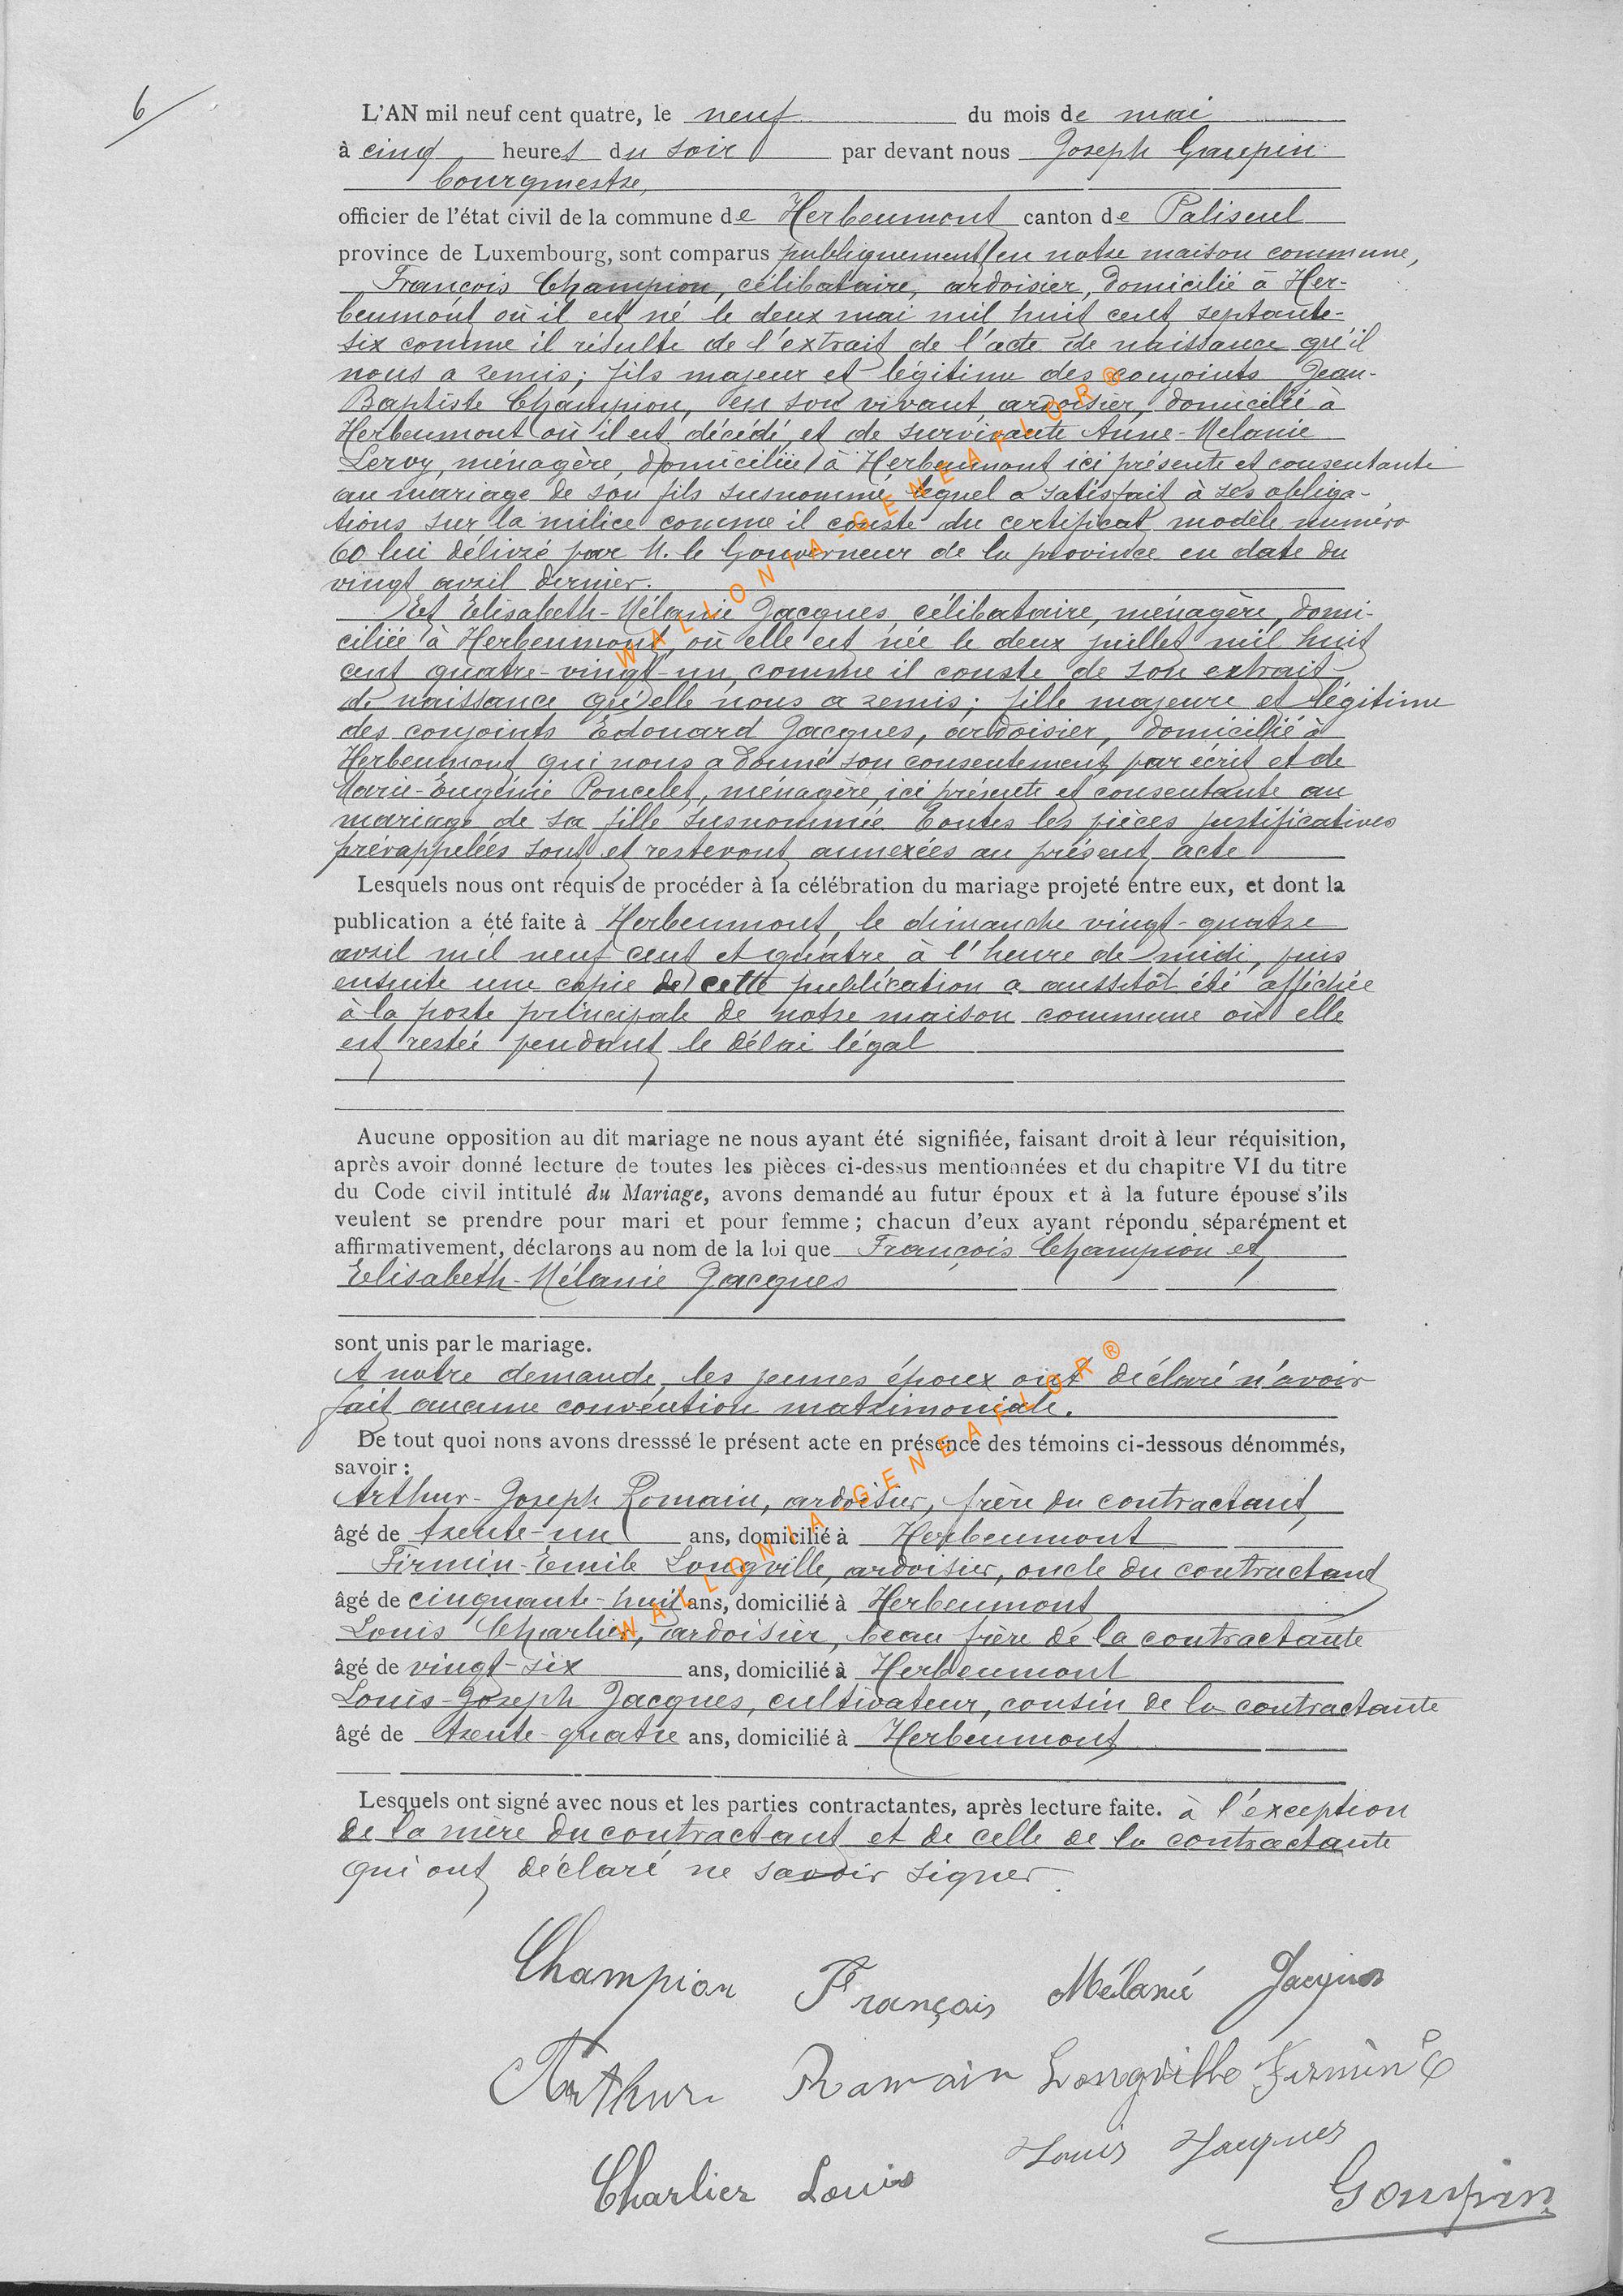 6
L'AN mil neuf cent quatre, le neuf du mois de mai
à cinq heures du soir par devant nous Joseph Goupin
bourgmestre,
officier de l'état civil de la commune de Herbeumont canton de Paliseul
province de Luxembourg, sont comparus publiquement en notre maison commune,
François Champion, célibataire, ardoisier, domicilié à Her-
beumont où il est né le deux mai mil huit cent septante-
six comme il résulte de l'extrait de l'acte de naissance qu'il
nous a remis; fils majeur et légitime des conjoints Jean-
Baptiste Champion, en son vivant ardoisier, domicilié à
Herbeumont où il est décédé, et de survivante Anne-Melanie
Leroy, ménagère, domiciliée à Herbeumont ici présente et consentante
au mariage de son fils susnommé lequel a satisfait à ses obliga-
tions sur la milice comme il conste du certificat modèle numéro
60 lui délivré par M. le Gouverneur de la province en date du
vingt avril dernier.
Et Elisabeth-Mélanie Jacques, célibataire, ménagère, domi-
ciliée à Herbeumont, où elle est née le deux juillet mil huit
cent quatre-vingt-un, comme il conste de son extrait
de naissance qu'elle nous a remis; fille majeure et légitime
des conjoints Edouard Jacques, ardoisier, domicilié à
Herbeumont qui nous a donné son consentement par écrit et de
Marie-Eugénie Poncelet, ménagère, ici présente et consentante au
mariage de sa fille susnommée. Toutes les pièces justificatives
prérappelées sont et resteront annexées au présent acte
Lesquels nous ont requis de procéder à la célébration du mariage projeté entre eux, et dont la
publication a été faite à Herbeumont, le dimanche vingt-quatre
avril mil neuf cent et quatre à l'heure de midi, puis
ensuite une copie de cette publication a aussitôt été affichée
à la porte principale de notre maison commune où elle
est restée pendant le délai légal
Aucune opposition au dit mariage ne nous ayant été signifiée, faisant droit à leur réquisition,
après avoir donné lecture de toutes les pièces ci-dessus mentionnées et du chapitre VI du titre
du Code civil intitulé du Mariage, avons demandé au futur époux et à la future épouse s'ils
veulent se prendre pour mari et pour femme ; chacun d'eux ayant répondu séparément et
affirmativement, déclarons au nom de la loi que François Champion et
Elisabeth-Mélanie Jacques
sont unis par le mariage.
A notre demande, les jeunes époux ont déclaré n'avoir
fait aucune convention matrimoniale.
De tout quoi nons avons dresssé le présent acte en présence des témoins ci-dessous dénommés,
savoir :
Arthur-Joseph Romain, ardoisier, frère du contractant,
âgé de trente-un ans, domicilié à Herbeumont
Firmin-Emile Longville, ardoisier, oncle du contractant
âgé de cinquante-huit ans, domicilié à Herbeumont
Louis Charlier, ardoisier, beau frère de la contractante
âgé de vingt-six ans, domicilié à Herbeumont
Louis-Joseph Jacques, cultivateur, cousin de la contractante
âgé de trente-quatre ans, domicilié à Herbeumont
Lesquels ont signé avec nous et les parties contractantes, après lecture faite. à l'exception
de la mère du contractant et de celle de la contractante
qui ont déclaré ne savoir signer.
Champion François Mélanie Jacques
Arthur Romain Longville Firmin E
Louis Jacques
Charlier Louis
Goupin
WALLONIA-GENEAFLOR®
WALLONIA-GENEAFLOR®